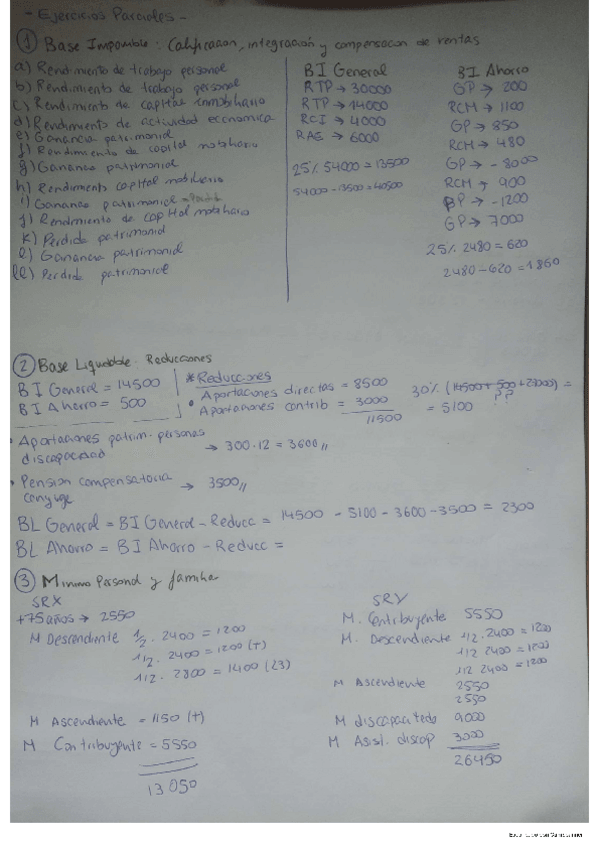 - Ejercicios Parciales -
① Base Imponible: Calificación, integración y compensación de rentas
a) Rendimiento de trabajo personal
b) Rendimiento de trabajo personal
c) Rendimiento de capital inmobiliario
d) Rendimiento de actividad económica
e) Ganancia patrimonial
f) Rendimiento de capital mobiliario
g) Ganancia patrimonial
h) Rendimiento capital mobiliario
i) Ganancia patrimonial
j) Rendimiento de capital mobiliario
k) Perdida patrimonial
l) Ganancia patrimonial
ll) Perdida patrimonial
BI General
RTP → 30000
RTP → 14000
RCI → 4000
RAE → 6000
25% 54000 = 13500
54000 - 13500 = 40500
BI Ahorro
GP → 200
RCM → 1100
GP → 850
RCM → 480
GP → - 8000
RCM → 900
PP → -1200
GP → 7000
25% 2480 = 620
2480 - 620 = 1860
② Base Liquidable - Reducciones
BI General = 14500
BI Ahorro = 500
* Reducciones
• Aportaciones directas = 8500
Aportaciones contrib = 3000
11500
30% (14500 + 500 + 23000) =
??
= 5100
• Aportaciones patrim. personas
discapacidad → 300 · 12 = 3600 //
• Pension compensatoria
conyuge → 3500 //
BL General = BI General - Reducc = 14500 - 5100 - 3600 - 3500 = 2300
BL Ahorro = BI Ahorro - Reducc =
③ Minimo Personal y familiar
SRX
+75 años → 2550
M Descendiente 1/2 · 2400 = 1200
1/2 · 2400 = 1200 (T)
1/2 · 2800 = 1400 (23)
M Ascendiente = 1150 (T)
M Contribuyente = 5550
13050
SRY
M. Contribuyente 5550
M. Descendiente 1/2 · 2400 = 1200
1/2 2400 = 1200
1/2 2400 = 1200
M Ascendiente 2550
2550
M discapacitado 9000
M Asist. discap 3000
26450